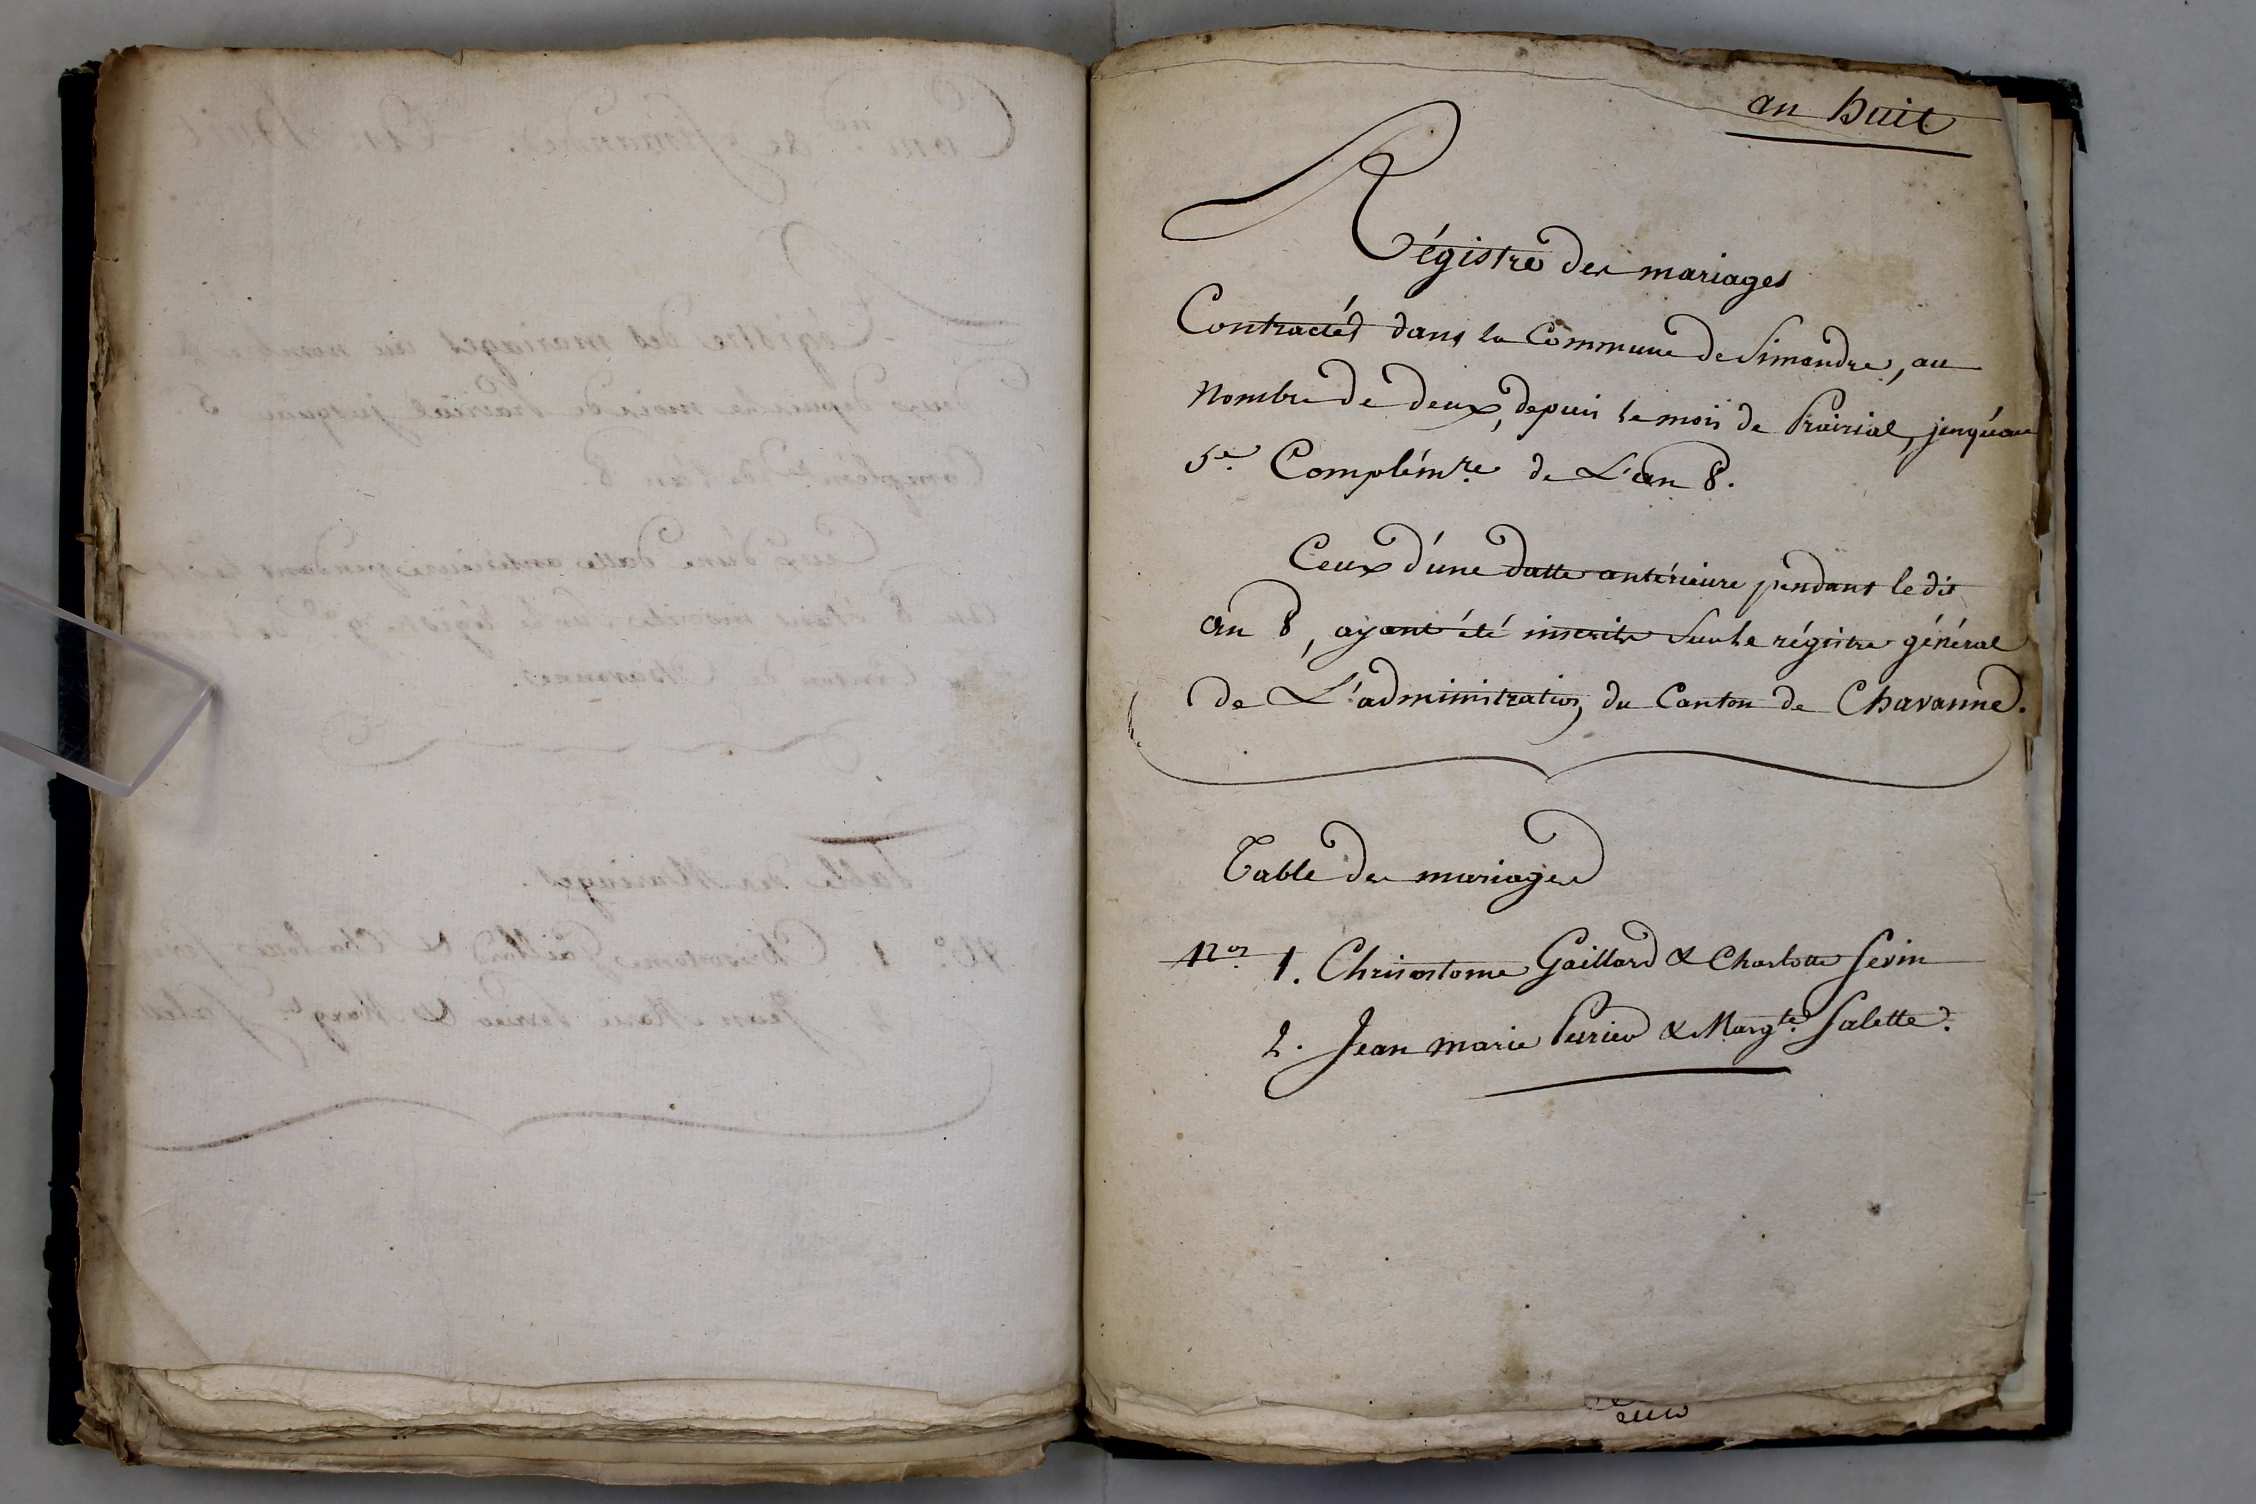 an huit
Régistre des mariages
Contractés dans la Commune de Simandre, au
Nombre de deux, depuis le mois de Prairial, jusqu'au
5e. Complémre. de L'an 8.
Ceux d'une datte antérieure pendant le dit
an 8, ayant été inscrits Sur le régistre général
de L'administration du Canton de Chavanne.
Table des mariages
Nos. 1. Chrisostome Gaillard & Charlotte Sevin
2. Jean marie Perrier & Margte. Salette.